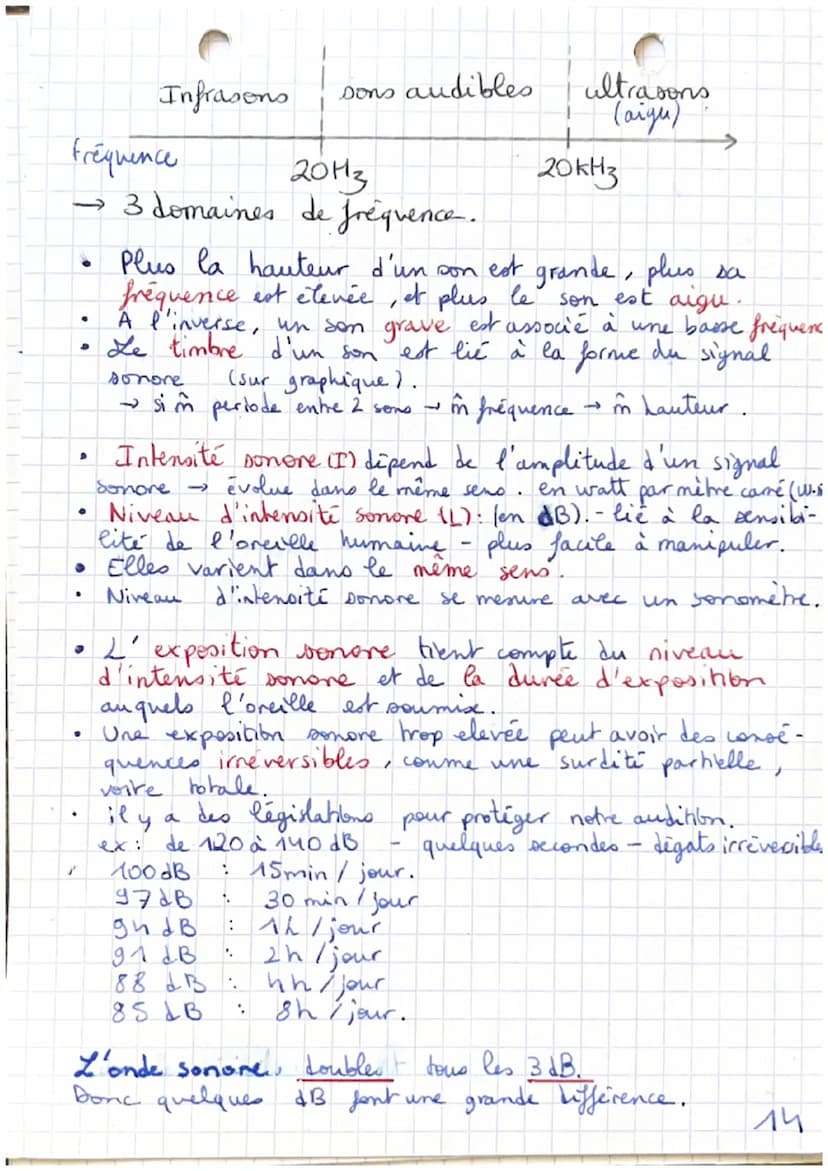 Infrasons sons audibles ultrasons
(aigu)
fréquence 20Hz 20kHz
→ 3 domaines de fréquence.
• Plus la hauteur d'un son est grande, plus sa
fréquence est élevée, et plus le son est aigu.
• A l'inverse, un son grave est associé à une basse fréquenc
• Le timbre d'un son est lié à la forme du signal
sonore (sur graphique).
→ si m̂ periode entre 2 sons → m̂ fréquence → m̂ hauteur.
• Intensité sonore (I) dépend de l'amplitude d'un signal
sonore → évolue dans le même sens. en watt par mètre carré (W.
• Niveau d'intensité sonore (L): (en dB). - lié à la sensibi-
lité de l'oreille humaine - plus facile à manipuler.
• Elles varient dans le même sens.
• Niveau d'intensité sonore se mesure avec un sonomètre.
• L'exposition sonore tient compte du niveau
d'intensité sonore et de la durée d'exposition
auquels l'oreille est soumise.
• Une exposition sonore trop elevée peut avoir des consé-
quences irréversibles, comme une surdité partielle,
voire totale.
• il y a des législations pour protéger notre audition.
ex: de 120 à 140 dB - quelques secondes - dégats irréversible
100 dB : 15min / jour.
97 dB : 30 min / jour
94 dB : 1h / jour
91 dB : 2h / jour
88 dB : 4h / jour
85 dB : 8h / jour.
L'onde sonore, doubles tous les 3 dB.
Donc quelques dB font une grande différence.
14